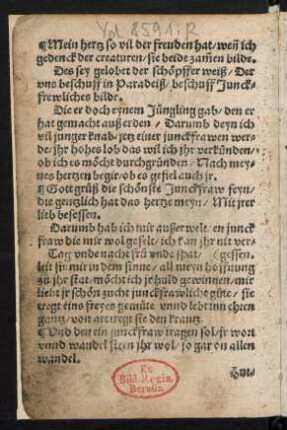 Yd 8591 R
¶ Mein hertz so vil der freuden hat/ weñ ich
gedenck der creaturen/ sie beide zamen bilde.
Des sey gelobet der schöpffer weiß/ Der
vns beschuff in Paradeiß/ beschuff Junck-
frewliches bilde.
Die er doch eynem Jüngling gab/ den er
hat gemacht auß erden/ Darumb deyn ich
vil junger knab/ jetz einer junckfrawen wer-
de/ jhr hohes lob das wil ich jhr verkünden/
ob ich es möcht durchgründen/ Nach mey-
nes hertzen begir/ ob es gefiel auch jr.
¶ Gott grüß die schönste Junckfraw feyn/
die gentzlich hat das hertze meyn/ Mit jrer
lieb besessen.
Darumb hab ich mir außerwelt/ en junck
fraw die mir wol gefelt/ ich kan jhr nit ver-
Tag vnde nacht frü vnde spat/ (gessen.
leit sie mir in dem sinne/ all meyn hoffnung
zu jhr stat/ möcht ich jr huld gewinnen/ mir
liebt jr schön zucht junckfrawliche güte/ sie
tregt eins freyes gemüte vnnd lebt inn ehren
gantz/ von tregt sie den krantz.
¶ Vnd den ein junckfraw tragen sol/ jr wort
vnnd wandel steen jhr wol/ so gar on allen
wandel.
Ex
Bibl. Regia
Berolin.